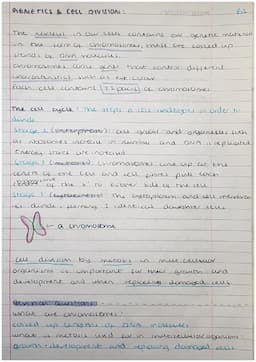 GENETICS & CELL DIVISION:
The nucleus in our cells contains our genetic material
in the form of chromosomes, these are coiled up
strands of DNA molecules.
Chromosomes carry genes that control different
characteristics such as eye colour.
Each cell contains 23 pairs of chromosomes
The cell cycle: The steps a cell undergoes in order to
divide.
Stage 1 (Interphase): cell grows and organelles such
as ribosomes increase in number and DNA is replicated
Stage 2 (mitosis): chromosomes line up at the
centre of the cell and cell fibres pull each
of the X to either side of the cell
Stage 3 (cytokinesis): The cytoplasm and cell membrane
divide forming 2 identical daughter cells
- a chromosome
cell division by mitosis in multicellular
organisms is important for their growth and
development and when replacing damaged cells
what are chromosomes?
coiled up lengths of DNA molecules
what is mitosis used for in multicellular organisms
growth, development and repairing damaged cells